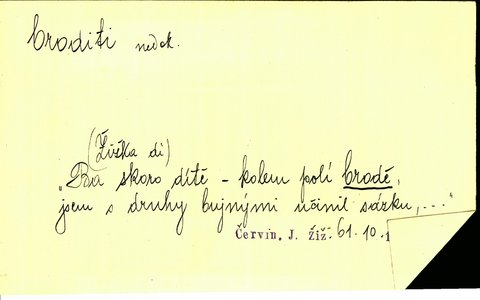 broditi nedok.
(Žižka dí)
„Ba skoro dítě – kolem polí brodě,
jsem s druhy bujnými učinil sázku,..."
Červín, J. Žiž. 61.10.1